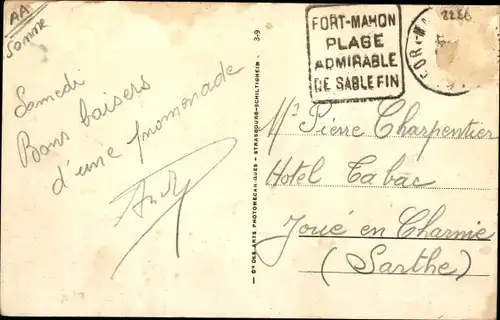 AA
Somme
2266
FORT-MAHON
PLAGE
ADMIRABLE
DE SABLE FIN
FORT-MA
Samedi
Bons baisers
d'une promenade
André
— Cie DES ARTS PHOTOMÉCANIQUES — STRASBOURG-SCHILTIGHEIM - 3-9
Mr Pierre Charpentier
Hotel Tabac
Joué en Charnie
(Sarthe)